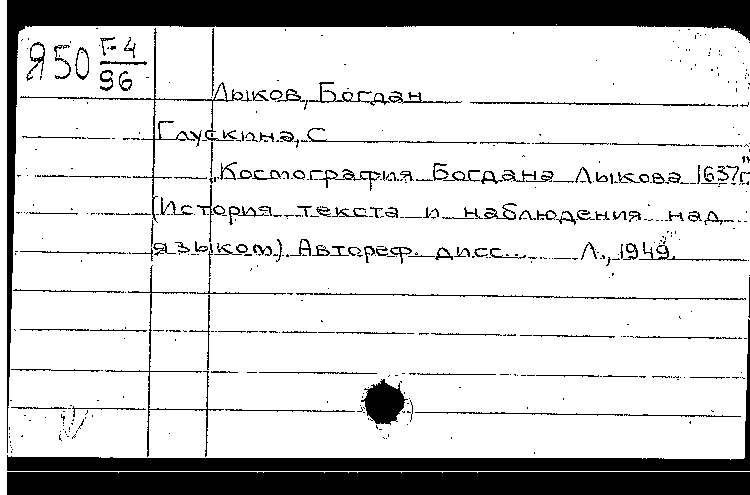 Я50 Г-4
96
Лыков, Богдан
Глускина, С
„Космография Богдана Лыкова 1637г."
(История текста и наблюдения над
языком). Автореф. дисс... Л., 1949.